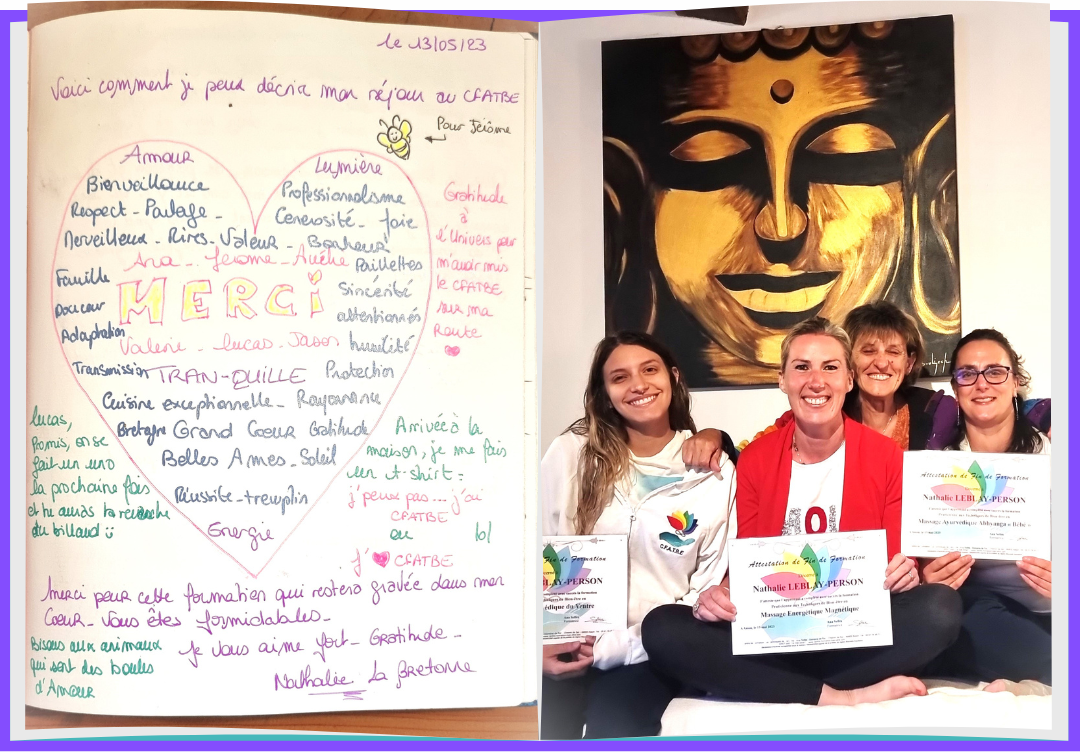 le 13/05/23
Voici comment je peux décrire mon séjour au CFATBE
Pour Jérôme
Amour
Lumière
Bienveillance
Professionnalisme
Respect - Partage -
Générosité - joie
Merveilleux - Rires - Valeur - Bonheur
Ana - Jérôme - Aurélie
Paillettes
Famille
MERCi
Sincérité
Douceur
attentionnés
Adaptation
Valérie - Lucas - Jason
humilité
Transmission
TRAN-QUILLE
Protection
Cuisine exceptionnelle -
Bretagne Grand Coeur Gratitude
Belles Ames - Soleil
Réussite - tremplin
Energie
Gratitude
à
l'Univers pour
m'avoir mis
le CFATBE
sur ma
Route
Lucas,
Promis, on se
fait un uno
la prochaine fois
et tu auras ta revanche
au billard
Arrivée à la
maison, je me fais
un t-shirt :
j'peux pas ... j'ai
CFATBE
ou
lol
j' CFATBE
Merci pour cette formation qui restera gravée dans mon
Coeur - Vous êtes formidables -
Je vous aime fort - Gratitude ...
Nathalie La Bretonne
Bisous aux animaux
qui sont des boules
d'Amour
CFATBE
de Fin de Formation
BLAY-PERSON
dique du Ventre
Attestation de Fin de Formation
Nathalie LEBLAY-PERSON
Massage Energétique Magnétique
Attestation de Fin de Formation
Nathalie LEBLAY-PERSON
Massage Ayurvédique Abhyanga « Bébé »